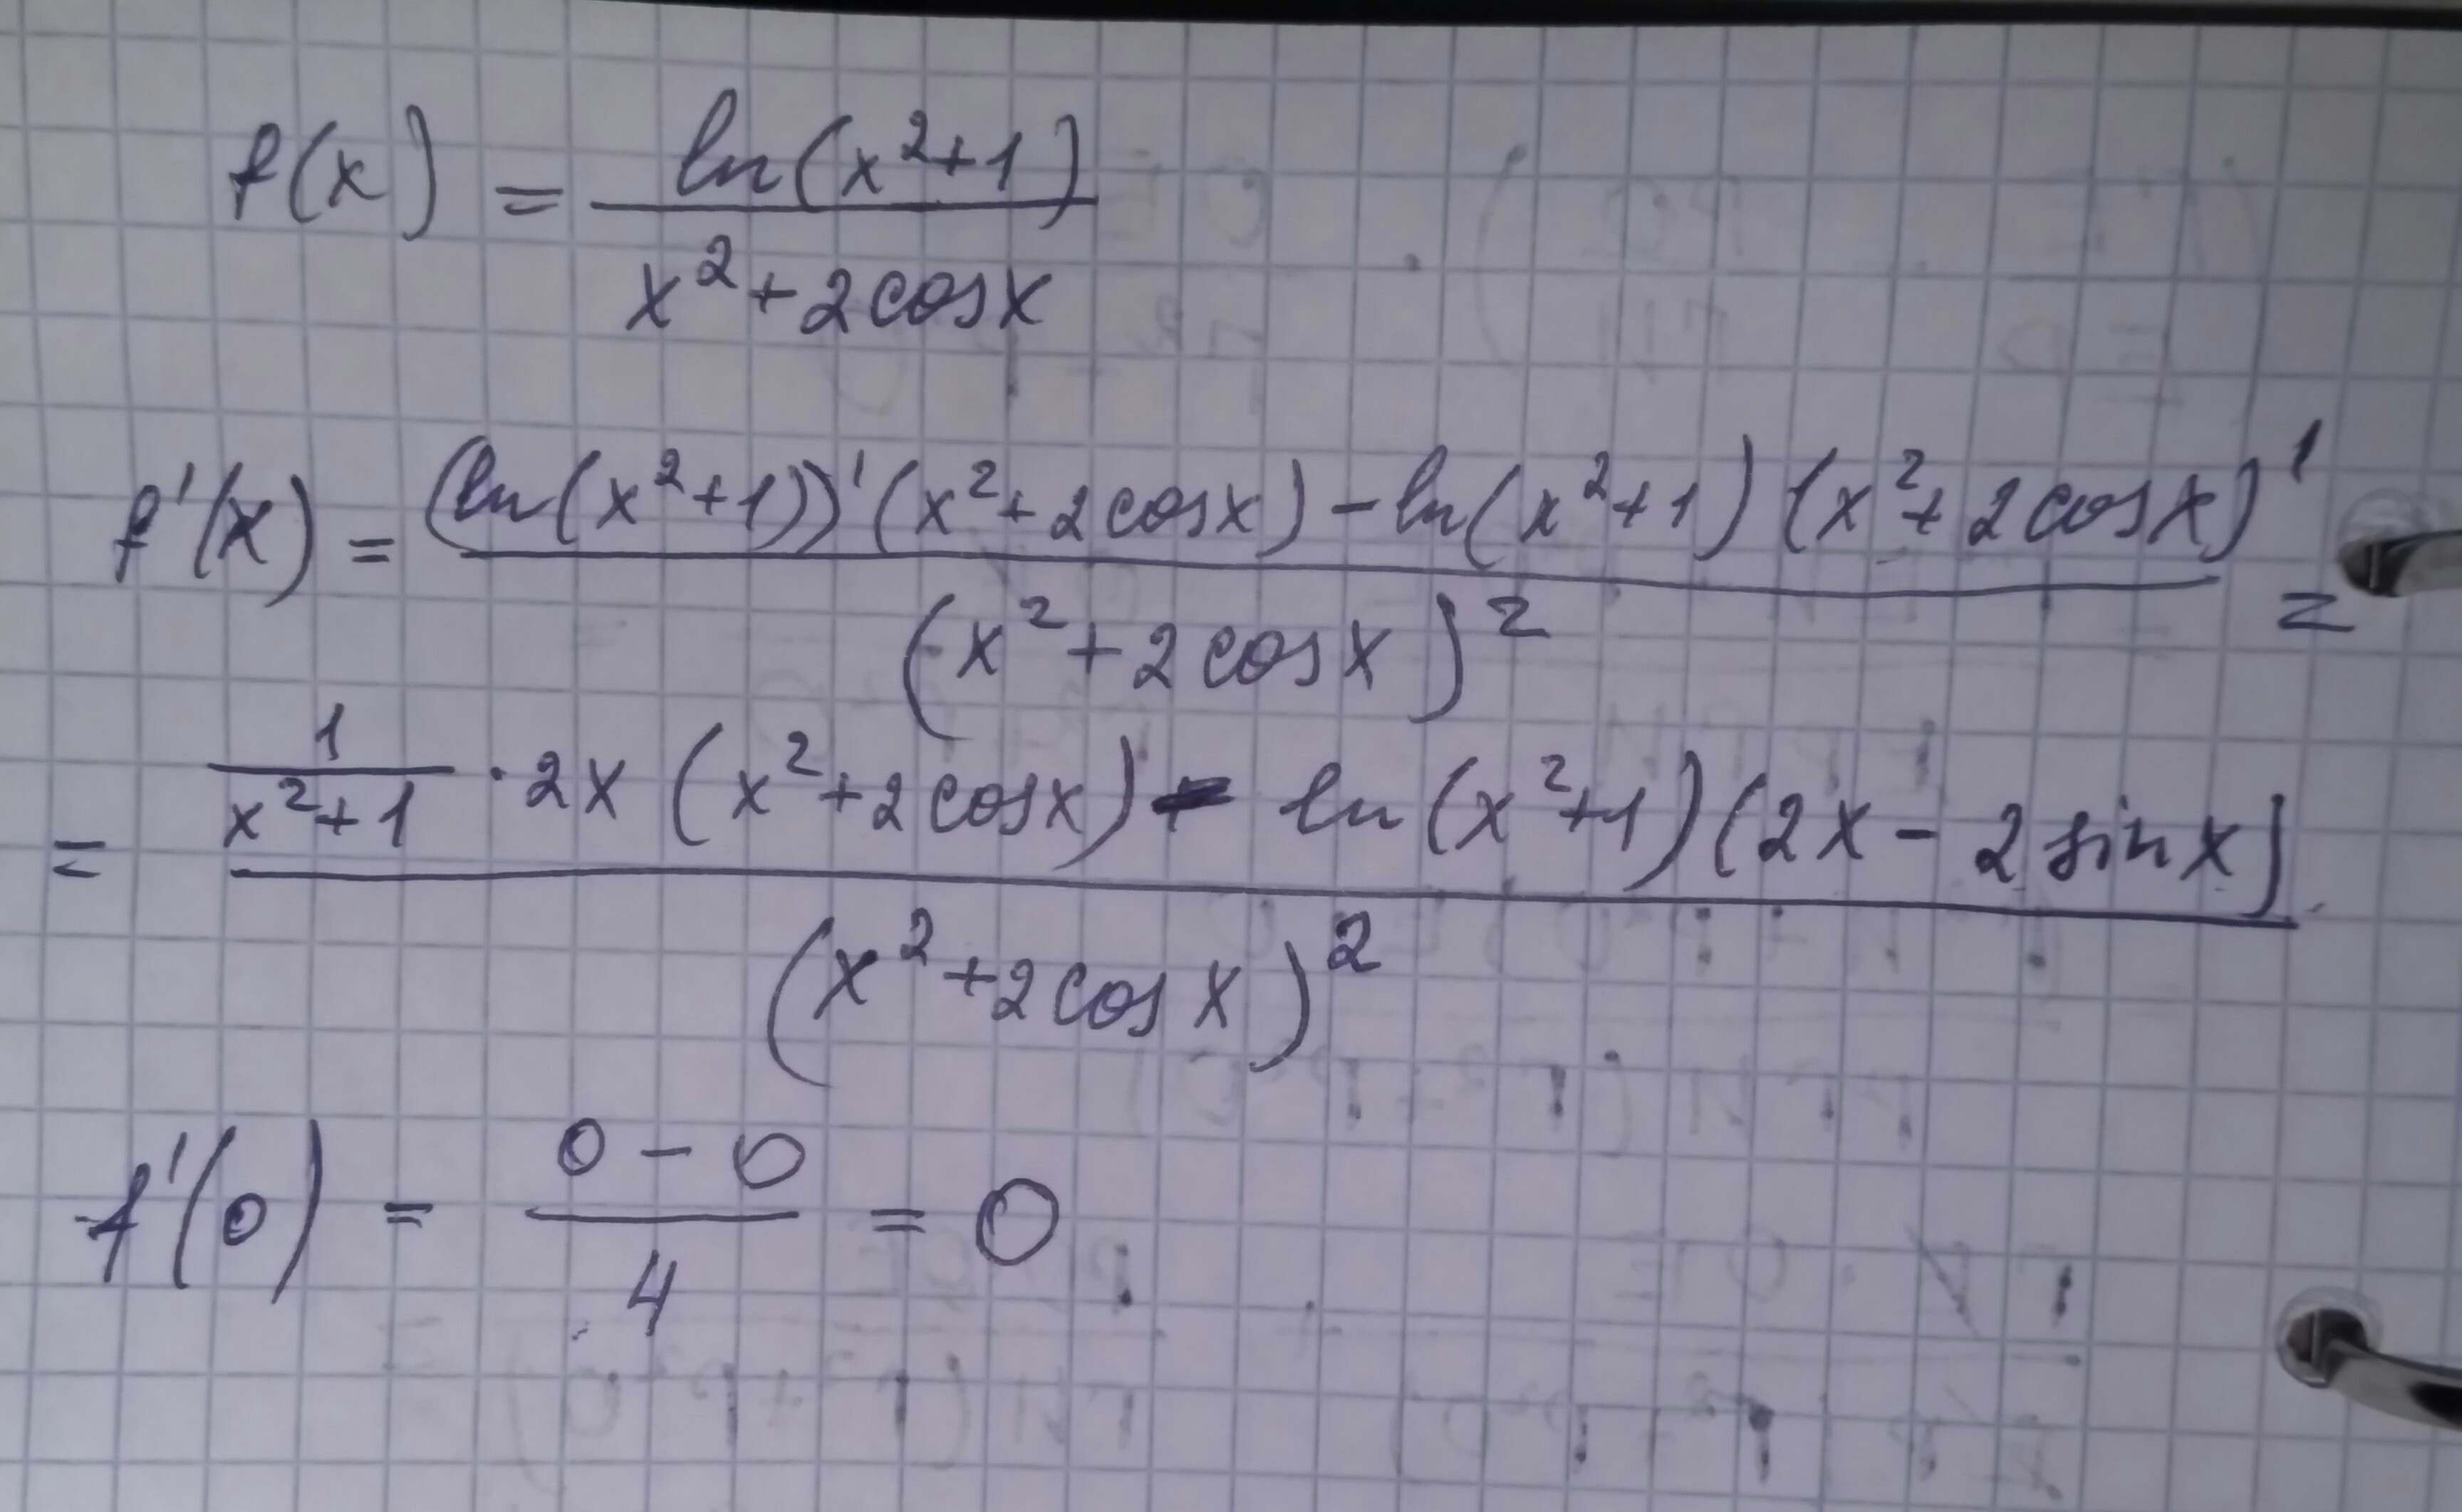 f(x) = ln(x²+1) / x²+2cosx
f'(x) = (ln(x²+1))'(x²+2cosx) - ln(x²+1)(x²+2cosx)' / (x²+2cosx)² =
= 1/(x²+1) · 2x(x²+2cosx) - ln(x²+1)(2x - 2sinx) / (x²+2cosx)²
f'(0) = 0 - 0 / 4 = 0